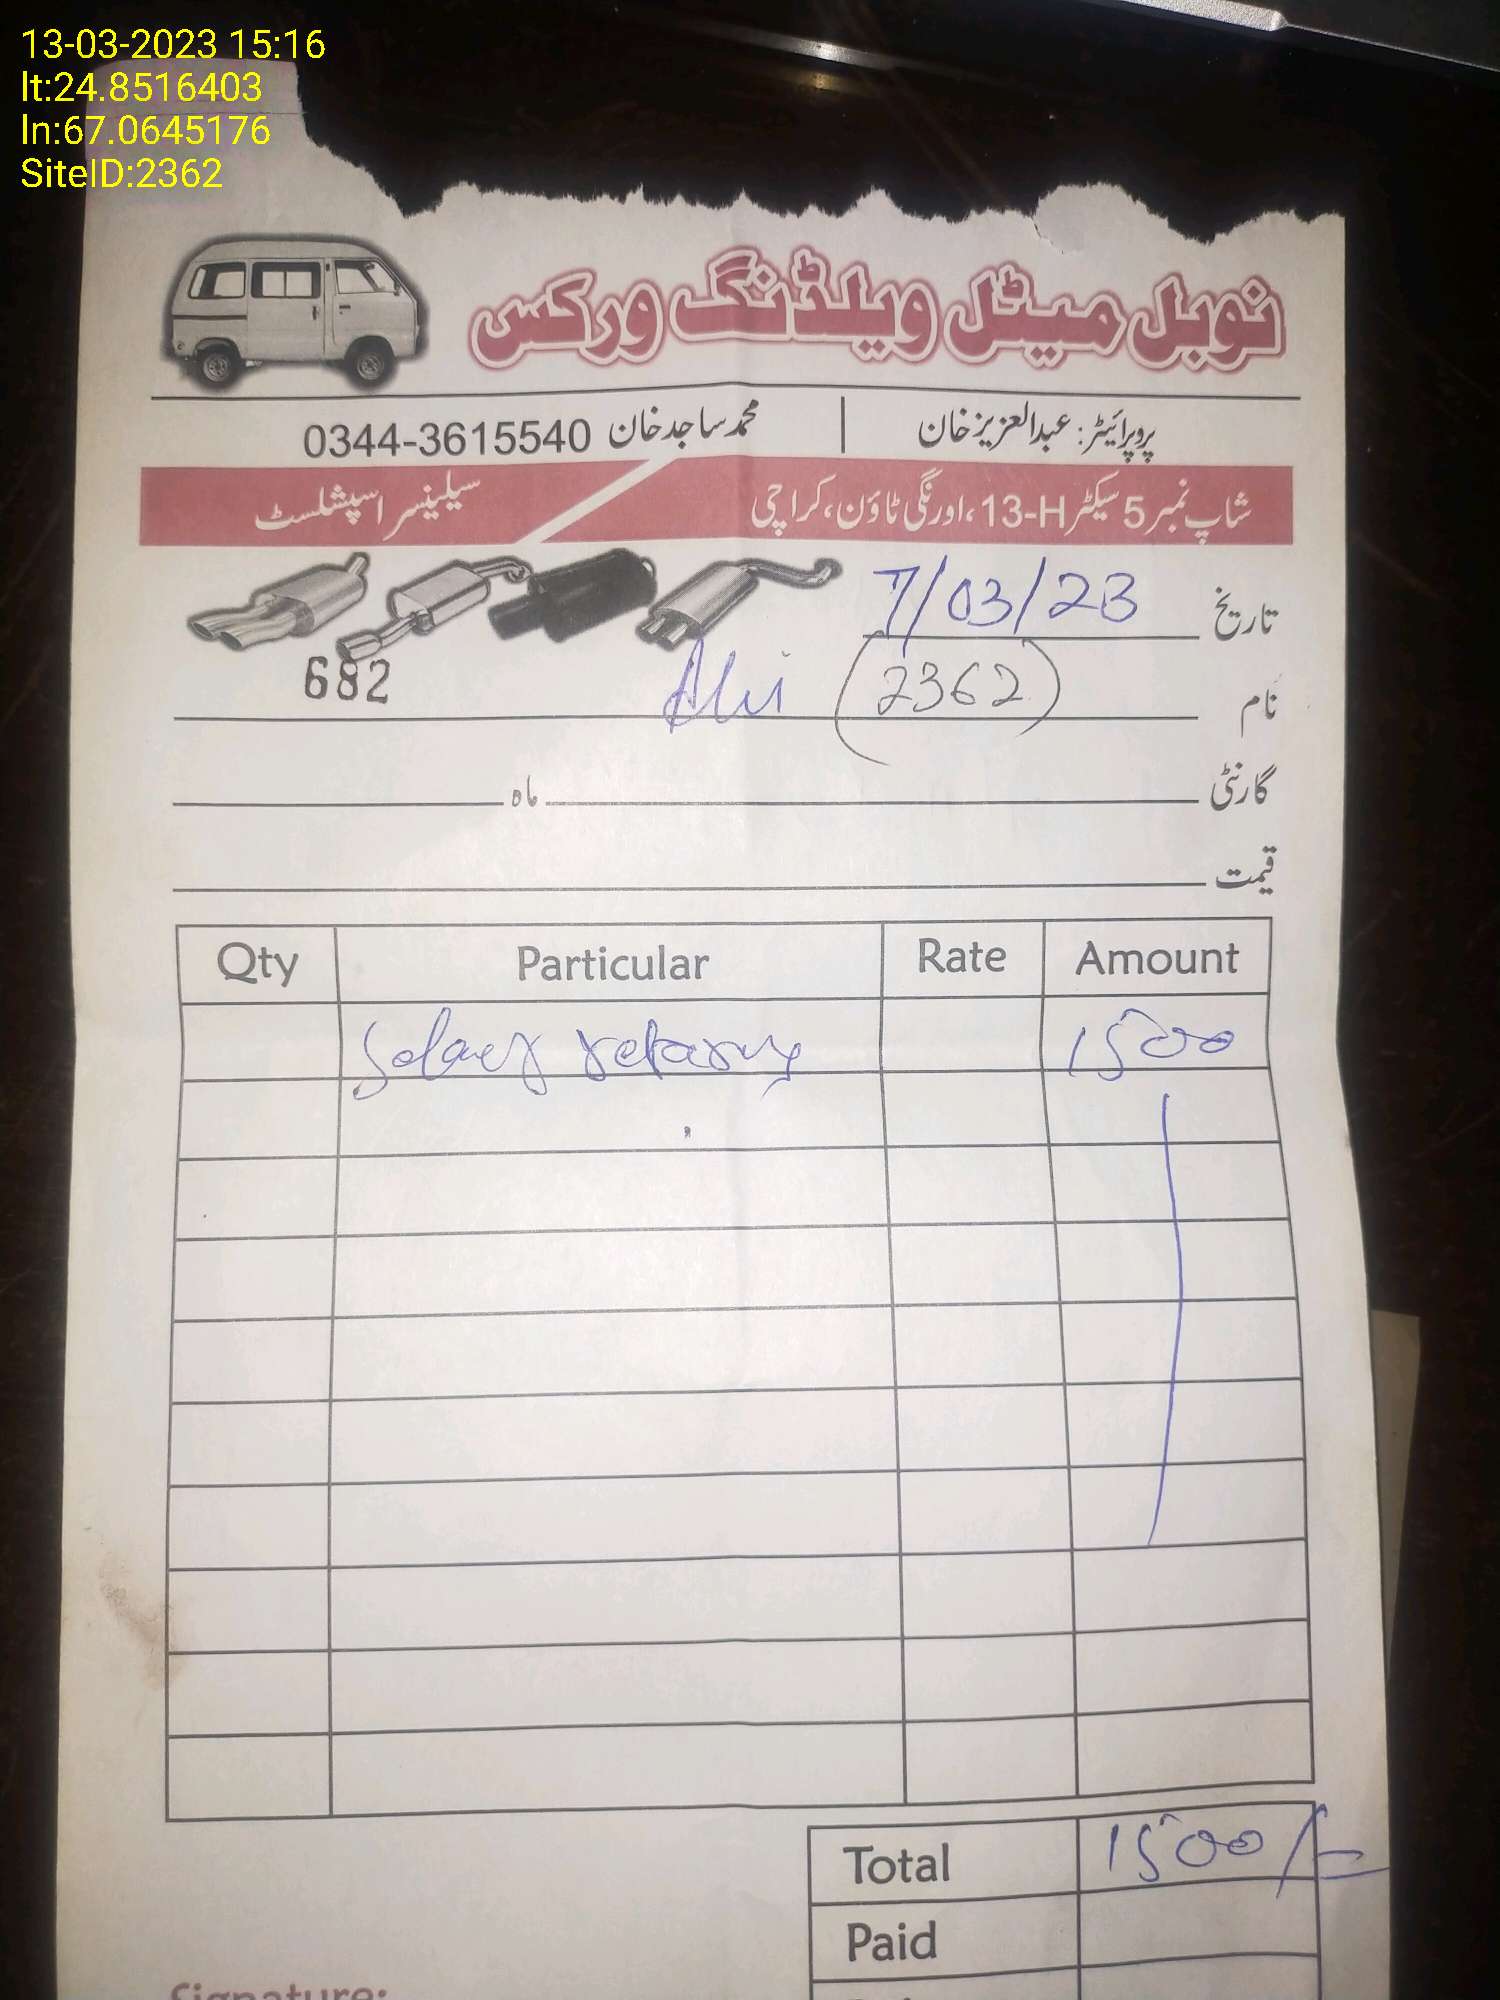 13-03-2023 15:16
lt:24.8516403
ln:67.0645176
SiteID:2362
نوبل میٹل ویلڈنگ ورکس
پروپرائیٹر: عبدالعزیز خان | محمد ساجد خان 0344-3615540
شاپ نمبر 5 سیکٹر 13-H، اورنگی ٹاؤن، کراچی سیلینسر اسپشلسٹ
تاریخ 7/03/23
682
نام (2362)
گارنٹی ماہ
قیمت
Qty Particular Rate Amount
1500
Total 1500/=
Paid
Signature: